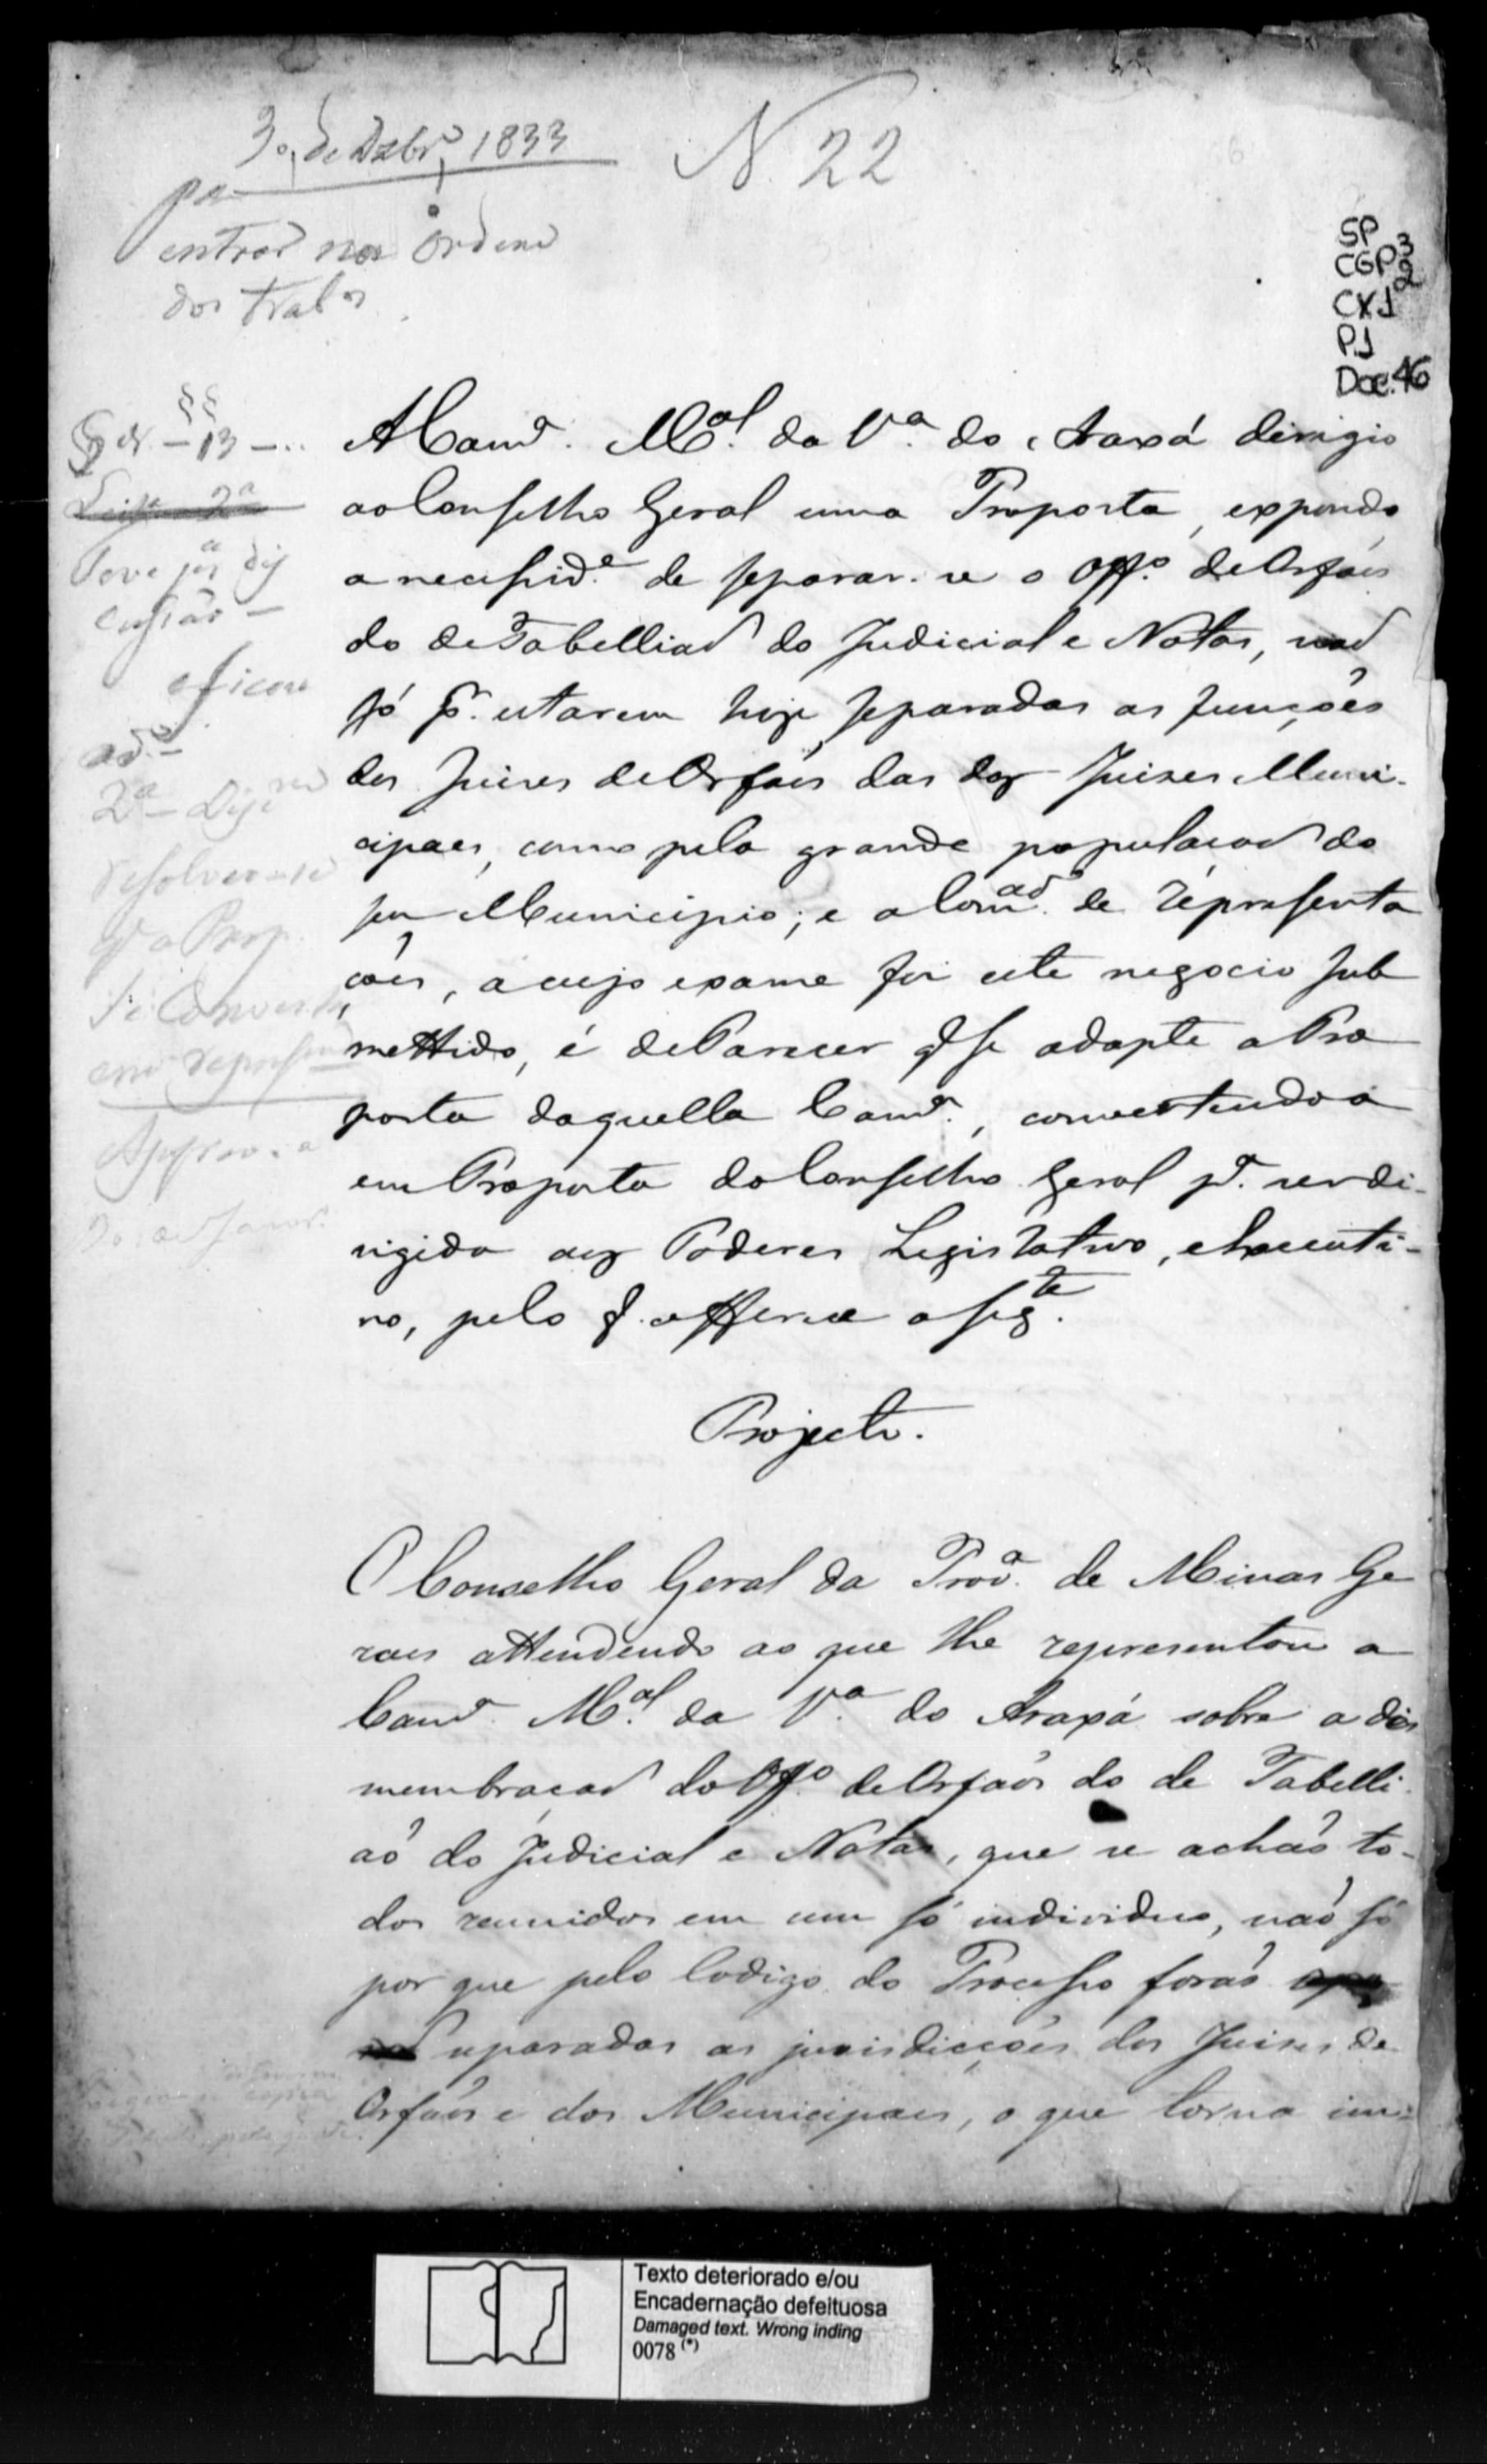 3 de Dzbrº 1833
N. 22
pª
entrar na ordem
dos trabos
SP
CGP3
CX12
P1
Doc.46
§§
13
2ª
Teve já dis
cussão
e ficou
ad.
2ª Disc
Resolveu-se
q a Prop.
se Converta
em represam
Approva
A Camrª. M.al da Vª. do Araxá dirigio
ao Conselho Geral uma Proposta, expondo
a necessid.e de separar-se o Off.º de Orfãos
do de Tabelliaõ do Judicial e Notas, naõ
só pr. estarem hoje separadas as funcções
dos Juises de Orfãos das dos Juises Muni-
cipaes, como pela grande populacaõ do
seu Municipio; e a Com.ad de representa
ções, a cujo exame foi este negocio sub
mettido, é de Parecer q se adopte a Pro
posta daquella Camrª., convertendo-a
em Proposta do Conselho Geral pª. ser di-
rigida aos Poderes Legislativo, e Executi-
vo, pelo q. offerece o seg.te
Projecto.
O Conselho Geral da Provª. de Minas Ge
raes attendendo ao que lhe representou a
Camrª. M.al da Vª. do Araxá sobre a dis
membraçaõ do Off.º de Orfaõs do de Tabelli
aõ do Judicial e Notas, que se achaõ to-
dos reunidos em um só individuo, naõ só
por que pelo Codigo do Processo foraõ
separadas as jurisdicções dos Juises de
Orfaõs e dos Municipaes, o que torna im-
Texto deteriorado e/ou
Encadernação defeituosa
Damaged text. Wrong inding
0078 (*)